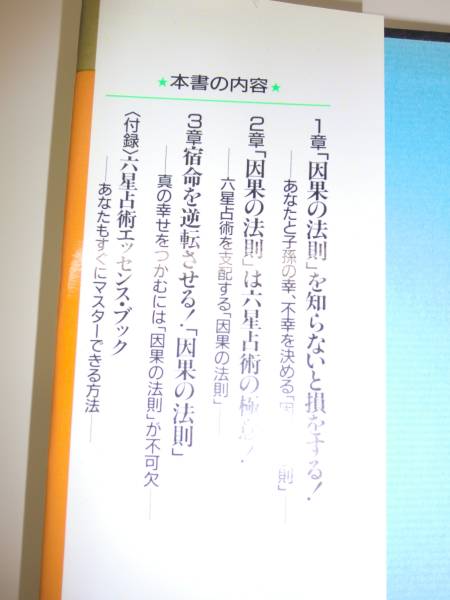 ★本書の内容★
1章「因果の法則」を知らないと損をする!
──あなたと子孫の幸、不幸を決める「因 則」──
2章「因果の法則」は六星占術の極意!
──六星占術を支配する「因果の法則」──
3章・宿命を逆転させる!「因果の法則」
──真の幸せをつかむには「因果の法則」が不可欠──
〈付録〉六星占術エッセンス・ブック
──あなたもすぐにマスターできる方法──